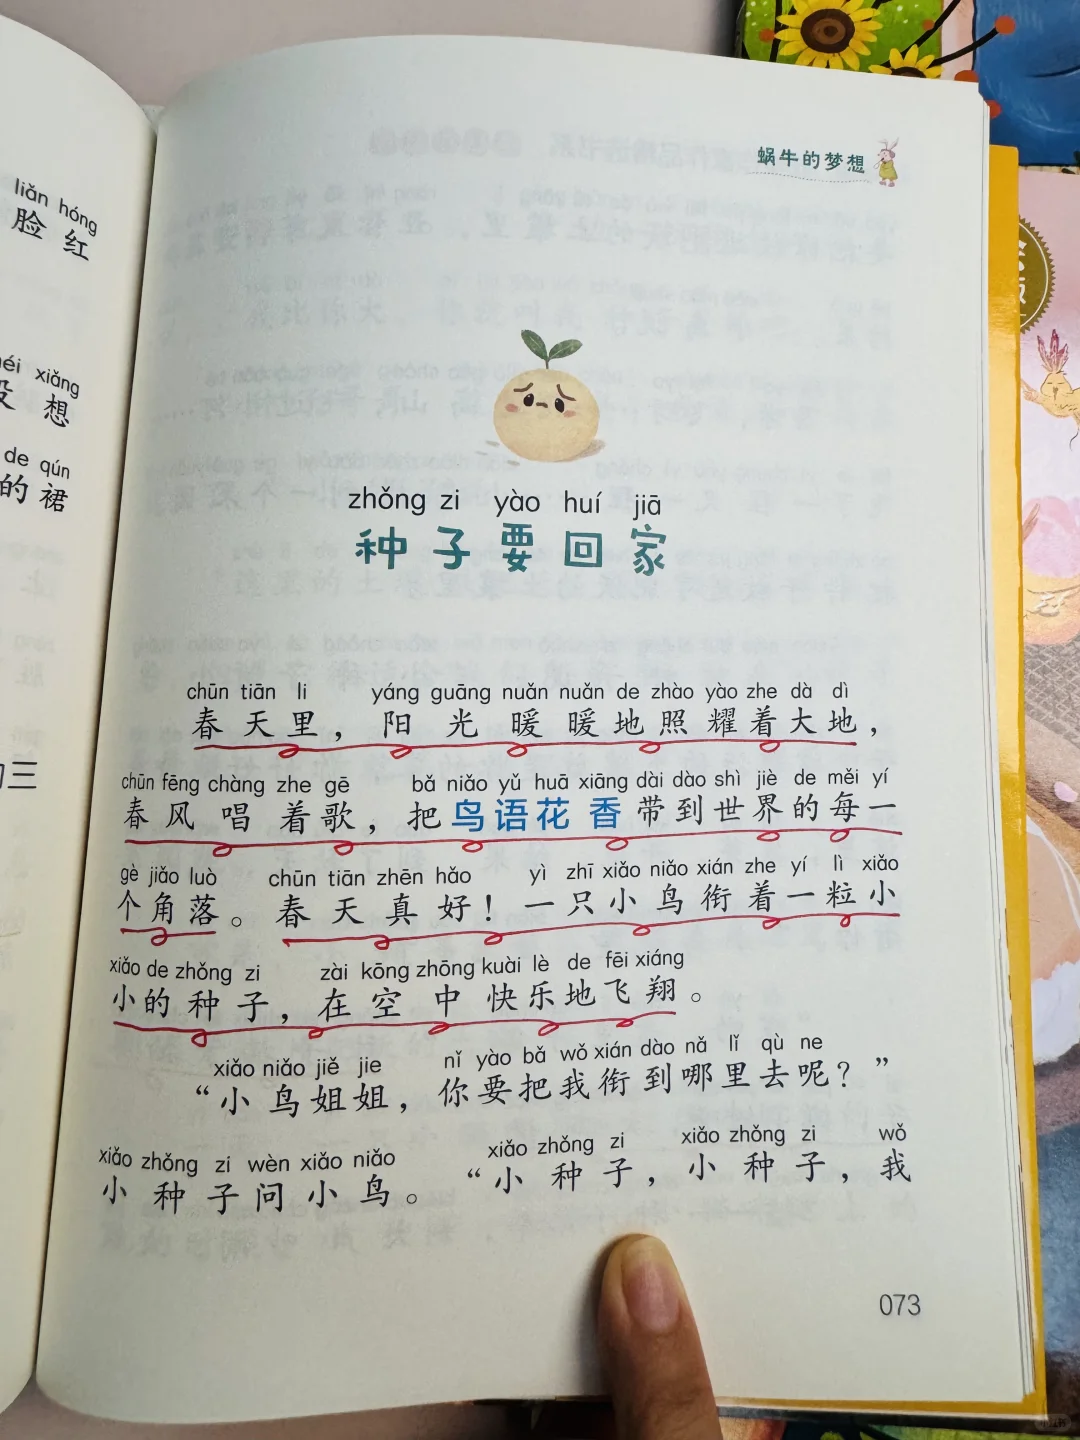 蜗牛的梦想
liǎn hóng
脸 红
xiǎng
想
de qún
的 裙
三
zhǒng zi yào huí jiā
种子要回家
chūn tiān li yáng guāng nuǎn nuǎn de zhào yào zhe dà dì
春天里，阳光暖暖地照耀着大地，
chūn fēng chàng zhe gē bǎ niǎo yǔ huā xiāng dài dào shì jiè de měi yí
春风唱着歌，把鸟语花香带到世界的每一
gè jiǎo luò chūn tiān zhēn hǎo yì zhī xiǎo niǎo xián zhe yí lì xiǎo
个角落。春天真好！一只小鸟衔着一粒小
xiǎo de zhǒng zi zài kōng zhōng kuài lè de fēi xiáng
小的种子，在空中快乐地飞翔。
xiǎo niǎo jiě jie nǐ yào bǎ wǒ xián dào nǎ lǐ qù ne
“小鸟姐姐，你要把我衔到哪里去呢？”
xiǎo zhǒng zi wèn xiǎo niǎo xiǎo zhǒng zi xiǎo zhǒng zi wǒ
小种子问小鸟。“小种子，小种子，我
073